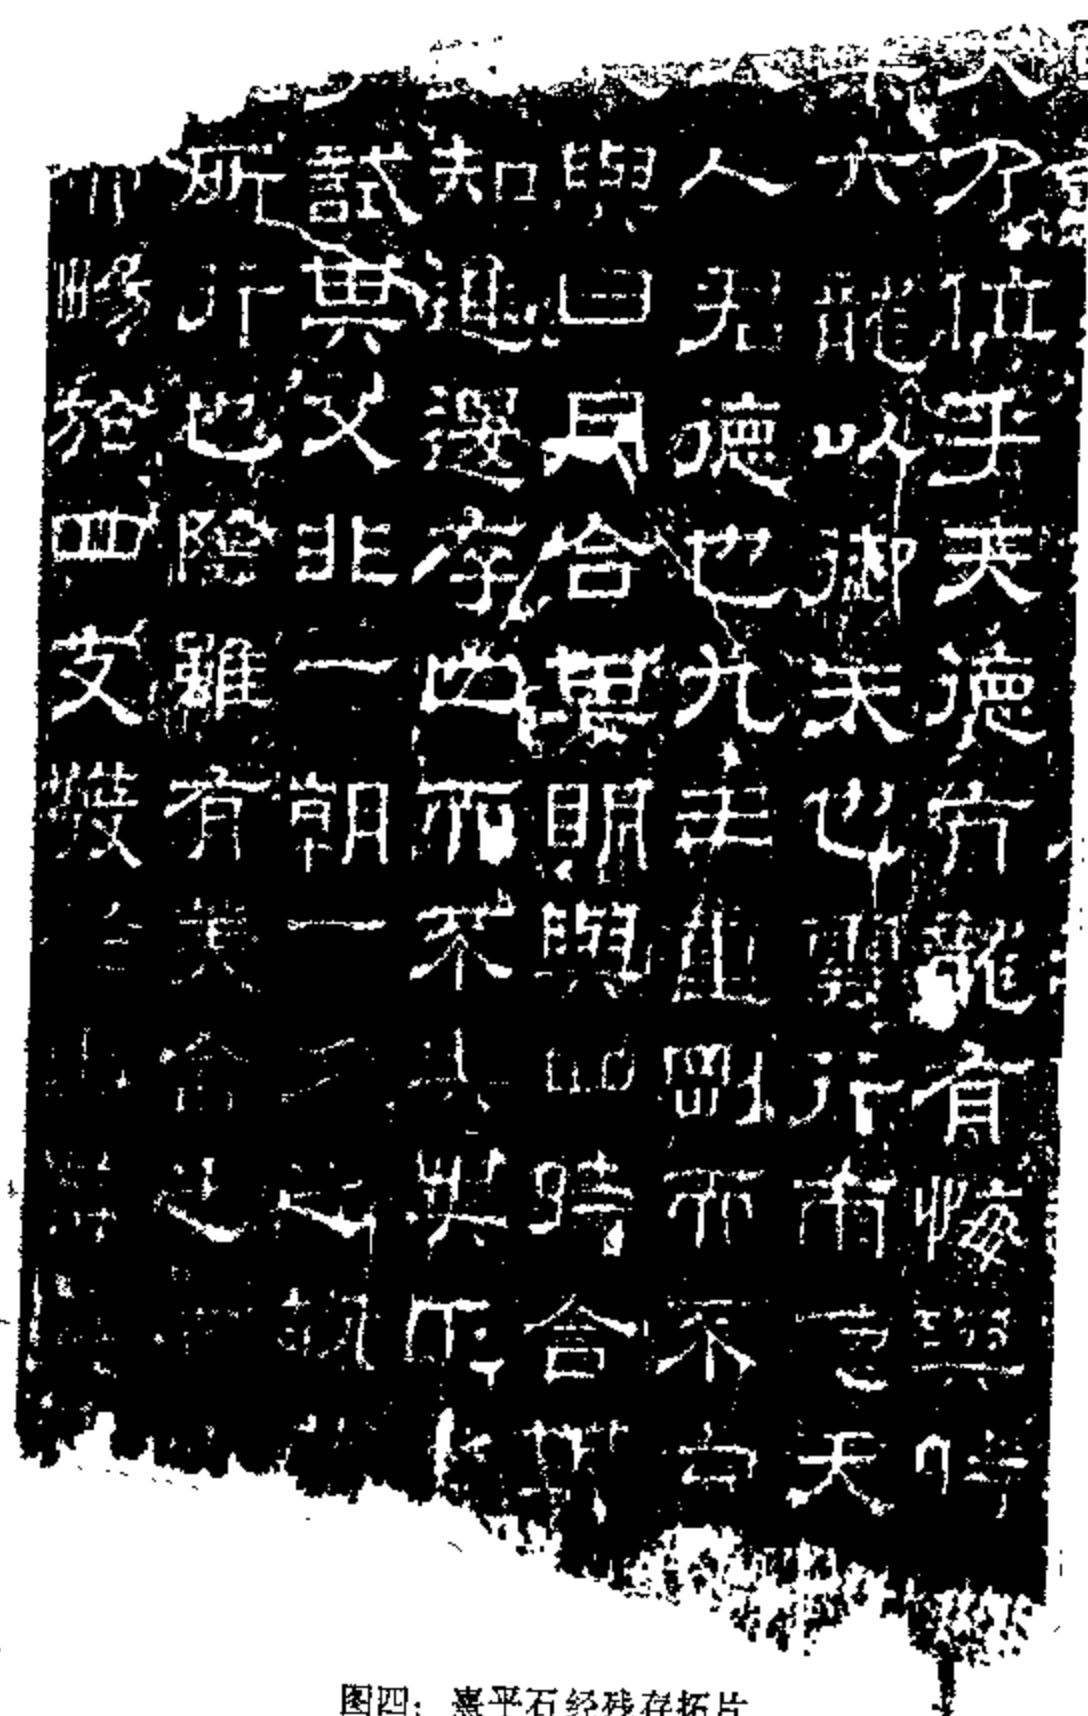 乃位乎天德亢龍有悔與時
六龍以御天也雲行雨施天
人君德也九三重剛而不中
與日月合其明與四時合其
知進退存亡而不失其正者
試其父非一朝一夕之故其
所行也陰雖有美含之
暢於四支發於事業
图四：熹平石经残存拓片